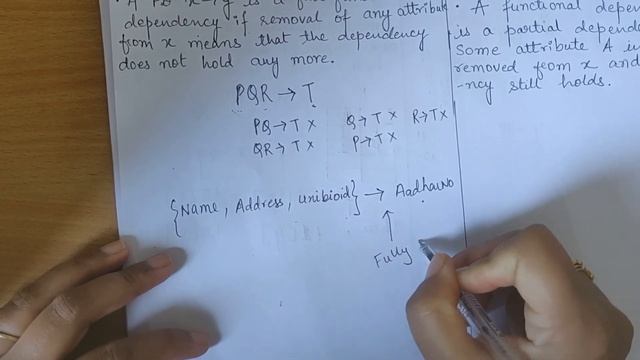 dependency if removal of any attribute
from x means that the dependency
does not hold any more.
PQR → T
PQ → T × Q → T × R → T ×
QR → T × P → T ×
{Name, Address, unibioid} → AadhaarNo
Fully
• A functional depen
is a partial depende
Some attribute A i
removed from x and
-ncy still holds.